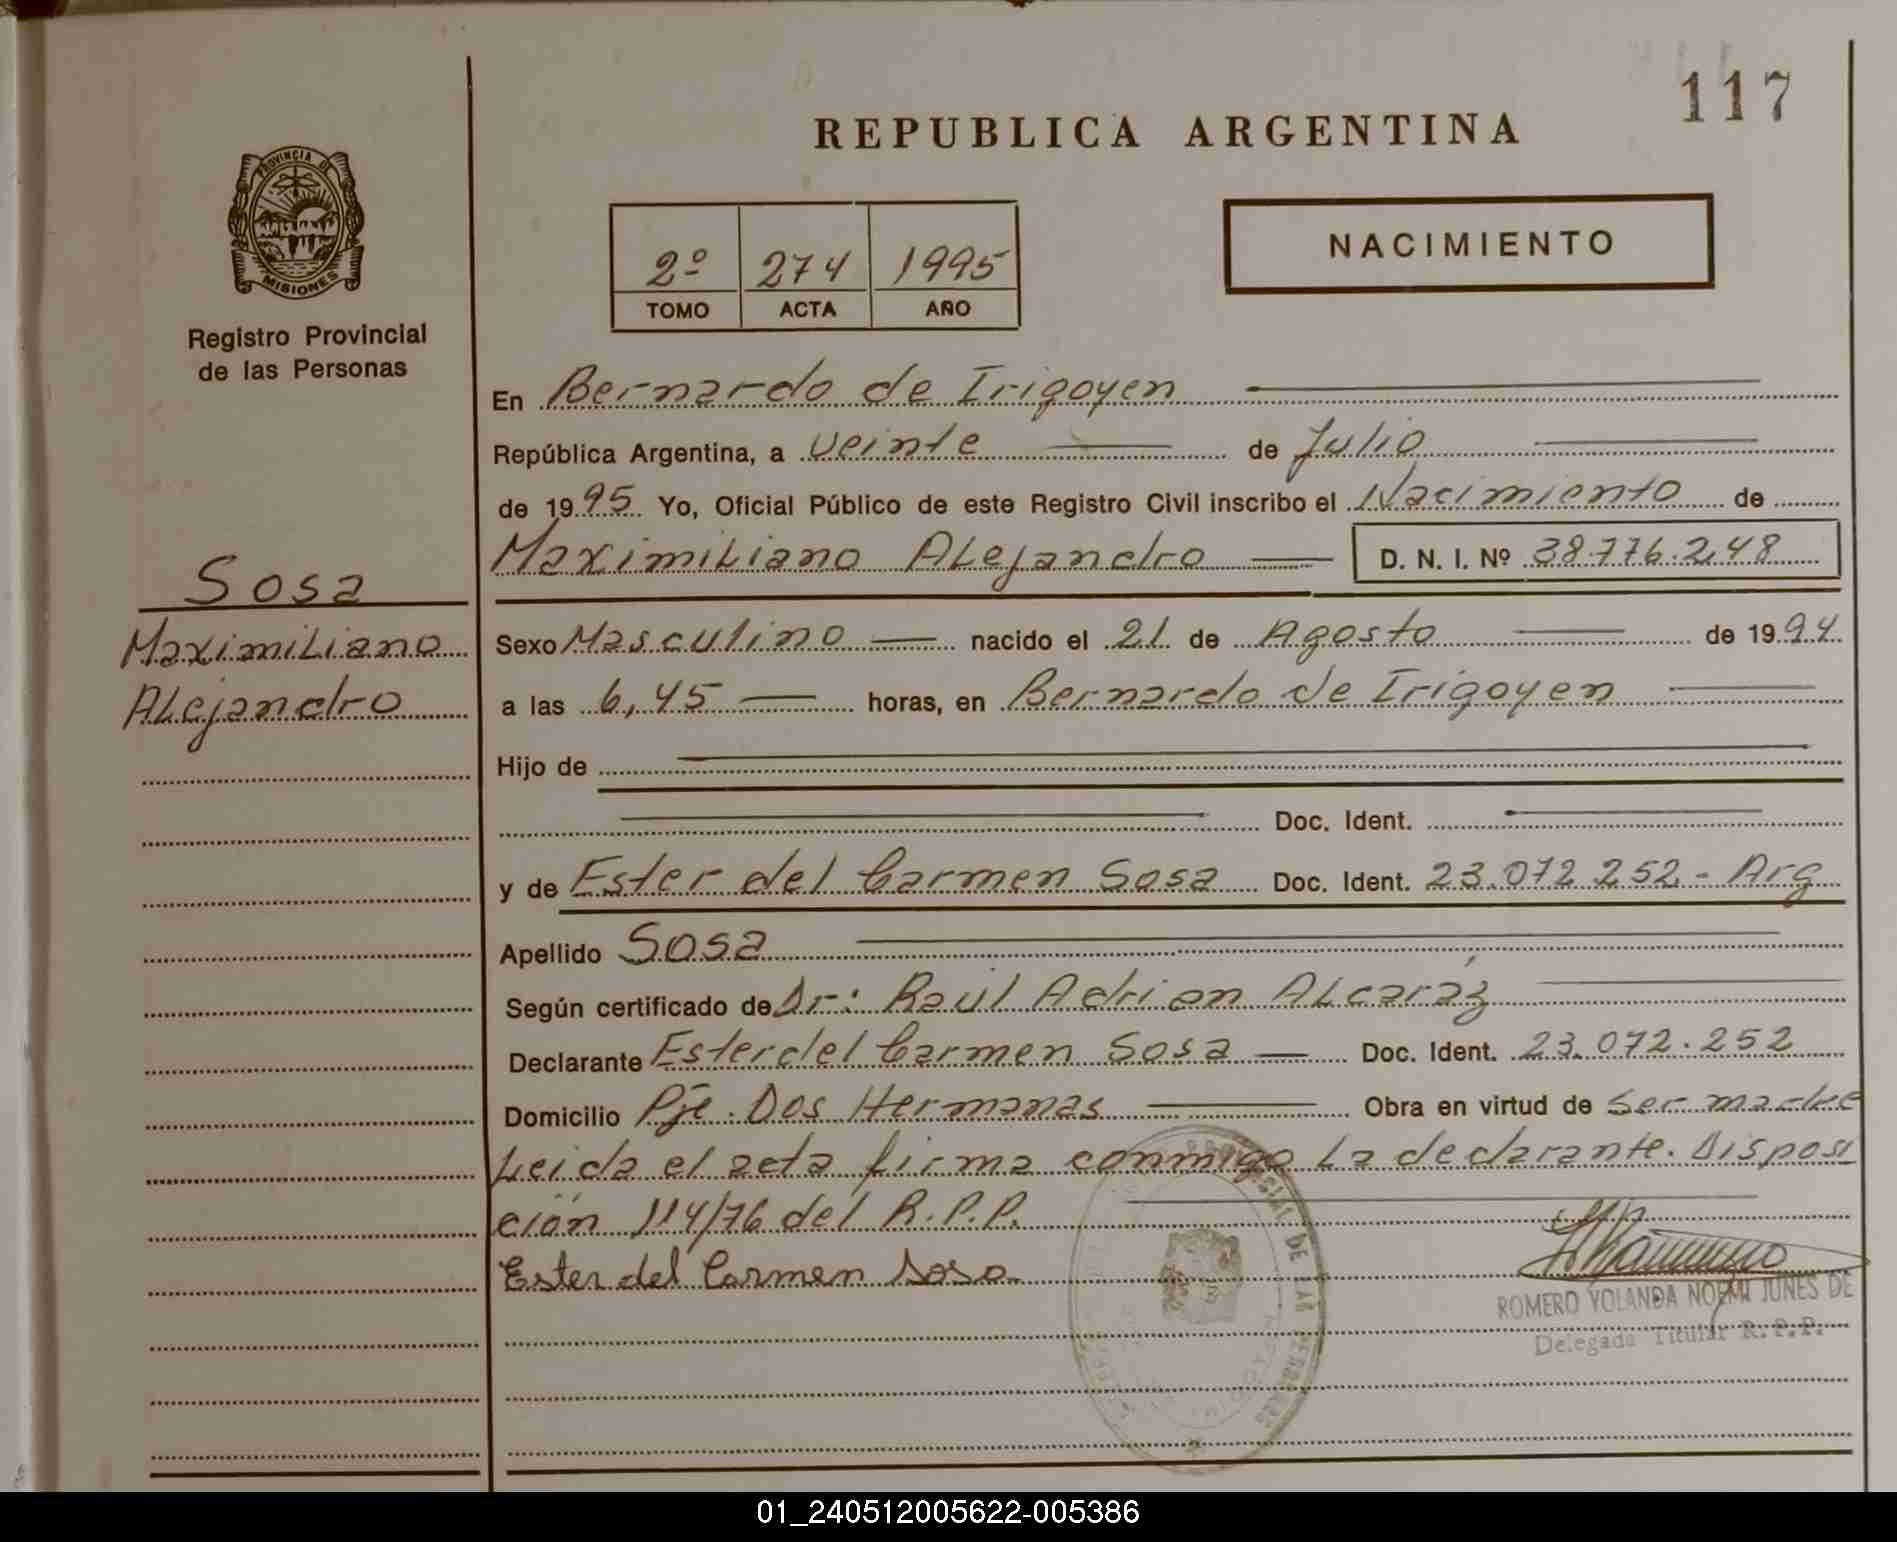 117
REPUBLICA ARGENTINA
PROVINCIA DE
MISIONES
Registro Provincial
de las Personas
2º 274 1995
TOMO ACTA AÑO
NACIMIENTO
En Bernardo de Irigoyen
República Argentina, a veinte de Julio
de 1995 Yo, Oficial Público de este Registro Civil inscribo el Nacimiento de
Maximiliano Alejandro D. N. I. Nº 38.776.248
Sosa
Maximiliano
Alejandro
Sexo Masculino nacido el 21 de Agosto de 1994
a las 6,45 horas, en Bernardo de Irigoyen
Hijo de
Doc. Ident.
y de Ester del Carmen Sosa Doc. Ident. 23.072.252.- Arg
Apellido Sosa
Según certificado de Dr: Raúl Adrian Alcaráz
Declarante Ester del Carmen Sosa Doc. Ident. 23.072.252
Domicilio Pje. Dos Hermanas Obra en virtud de Ser madre
Leida el acta firma conmigo la declarante. Disposi
ción 114/76 del R.P.P.
Ester del Carmen Sosa
ROMERO YOLANDA NOEMI JUNES DE
Delegada Titular R.P.P.
01_240512005622-005386